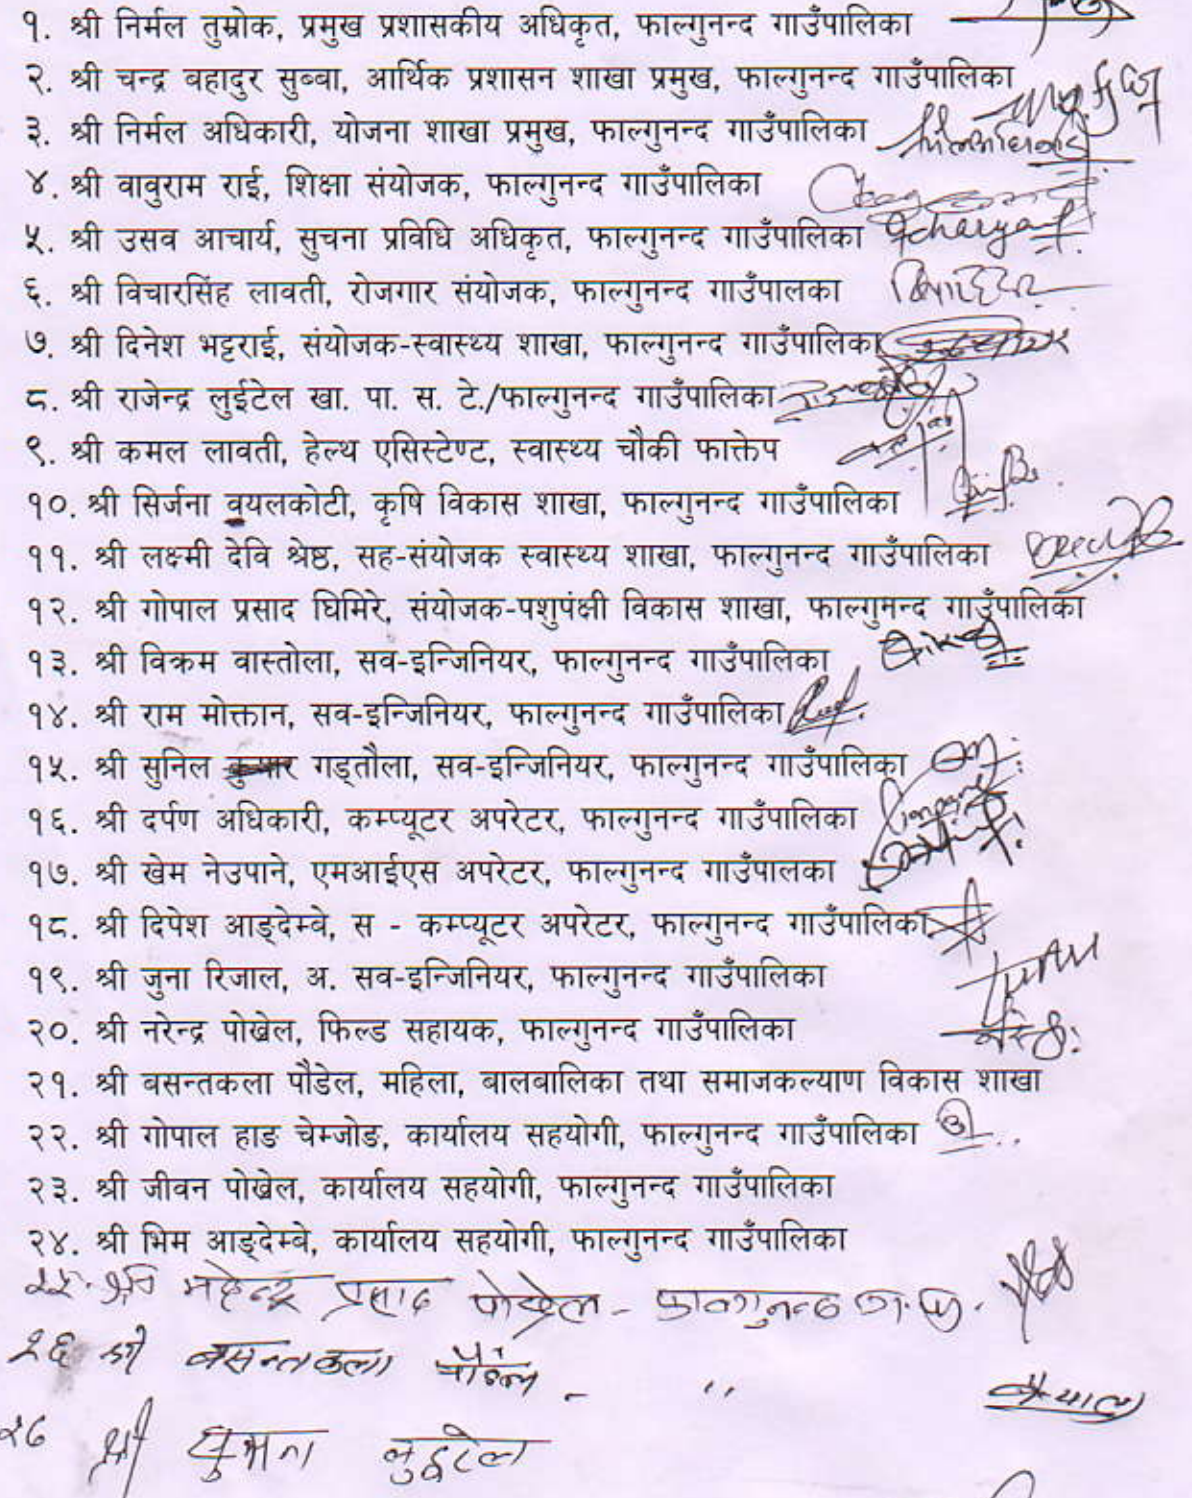 १. श्री निर्मल तुम्रोक, प्रमुख प्रशासकीय अधिकृत, फाल्गुनन्द गाउँपालिका
२. श्री चन्द्र बहादुर सुब्बा, आर्थिक प्रशासन शाखा प्रमुख, फाल्गुनन्द गाउँपालिका
३. श्री निर्मल अधिकारी, योजना शाखा प्रमुख, फाल्गुनन्द गाउँपालिका
४. श्री वावुराम राई, शिक्षा संयोजक, फाल्गुनन्द गाउँपालिका
५. श्री उसव आचार्य, सुचना प्रविधि अधिकृत, फाल्गुनन्द गाउँपालिका Acharya
६. श्री विचारसिंह लावती, रोजगार संयोजक, फाल्गुनन्द गाउँपालका
७. श्री दिनेश भट्टराई, संयोजक-स्वास्थ्य शाखा, फाल्गुनन्द गाउँपालिका
८. श्री राजेन्द्र लुईटेल खा. पा. स. टे./फाल्गुनन्द गाउँपालिका
९. श्री कमल लावती, हेल्थ एसिस्टेण्ट, स्वास्थ्य चौकी फाक्तेप
१०. श्री सिर्जना वयलकोटी, कृषि विकास शाखा, फाल्गुनन्द गाउँपालिका
११. श्री लक्ष्मी देवि श्रेष्ठ, सह-संयोजक स्वास्थ्य शाखा, फाल्गुनन्द गाउँपालिका
१२. श्री गोपाल प्रसाद घिमिरे, संयोजक-पशुपंक्षी विकास शाखा, फाल्गुमन्द गाउँपालिका
१३. श्री विक्रम वास्तोला, सव-इन्जिनियर, फाल्गुनन्द गाउँपालिका
१४. श्री राम मोक्तान, सव-इन्जिनियर, फाल्गुनन्द गाउँपालिका
१५. श्री सुनिल कुमार गड्तौला, सव-इन्जिनियर, फाल्गुनन्द गाउँपालिका
१६. श्री दर्पण अधिकारी, कम्प्यूटर अपरेटर, फाल्गुनन्द गाउँपालिका
१७. श्री खेम नेउपाने, एमआईएस अपरेटर, फाल्गुनन्द गाउँपालका
१८. श्री दिपेश आङ्देम्बे, स - कम्प्यूटर अपरेटर, फाल्गुनन्द गाउँपालिका
१९. श्री जुना रिजाल, अ. सव-इन्जिनियर, फाल्गुनन्द गाउँपालिका
२०. श्री नरेन्द्र पोख्रेल, फिल्ड सहायक, फाल्गुनन्द गाउँपालिका
२१. श्री बसन्तकला पौडेल, महिला, बालबालिका तथा समाजकल्याण विकास शाखा
२२. श्री गोपाल हाङ चेम्जोङ, कार्यालय सहयोगी, फाल्गुनन्द गाउँपालिका
२३. श्री जीवन पोख्रेल, कार्यालय सहयोगी, फाल्गुनन्द गाउँपालिका
२४. श्री भिम आङ्देम्बे, कार्यालय सहयोगी, फाल्गुनन्द गाउँपालिका
२५. श्री महेन्द्र प्रसाद पोख्रेल - फाल्गुनन्द गा.पा.
२६ श्री बसन्तकला पौडेल - ,,
२७ श्री सुमना लुइटेल